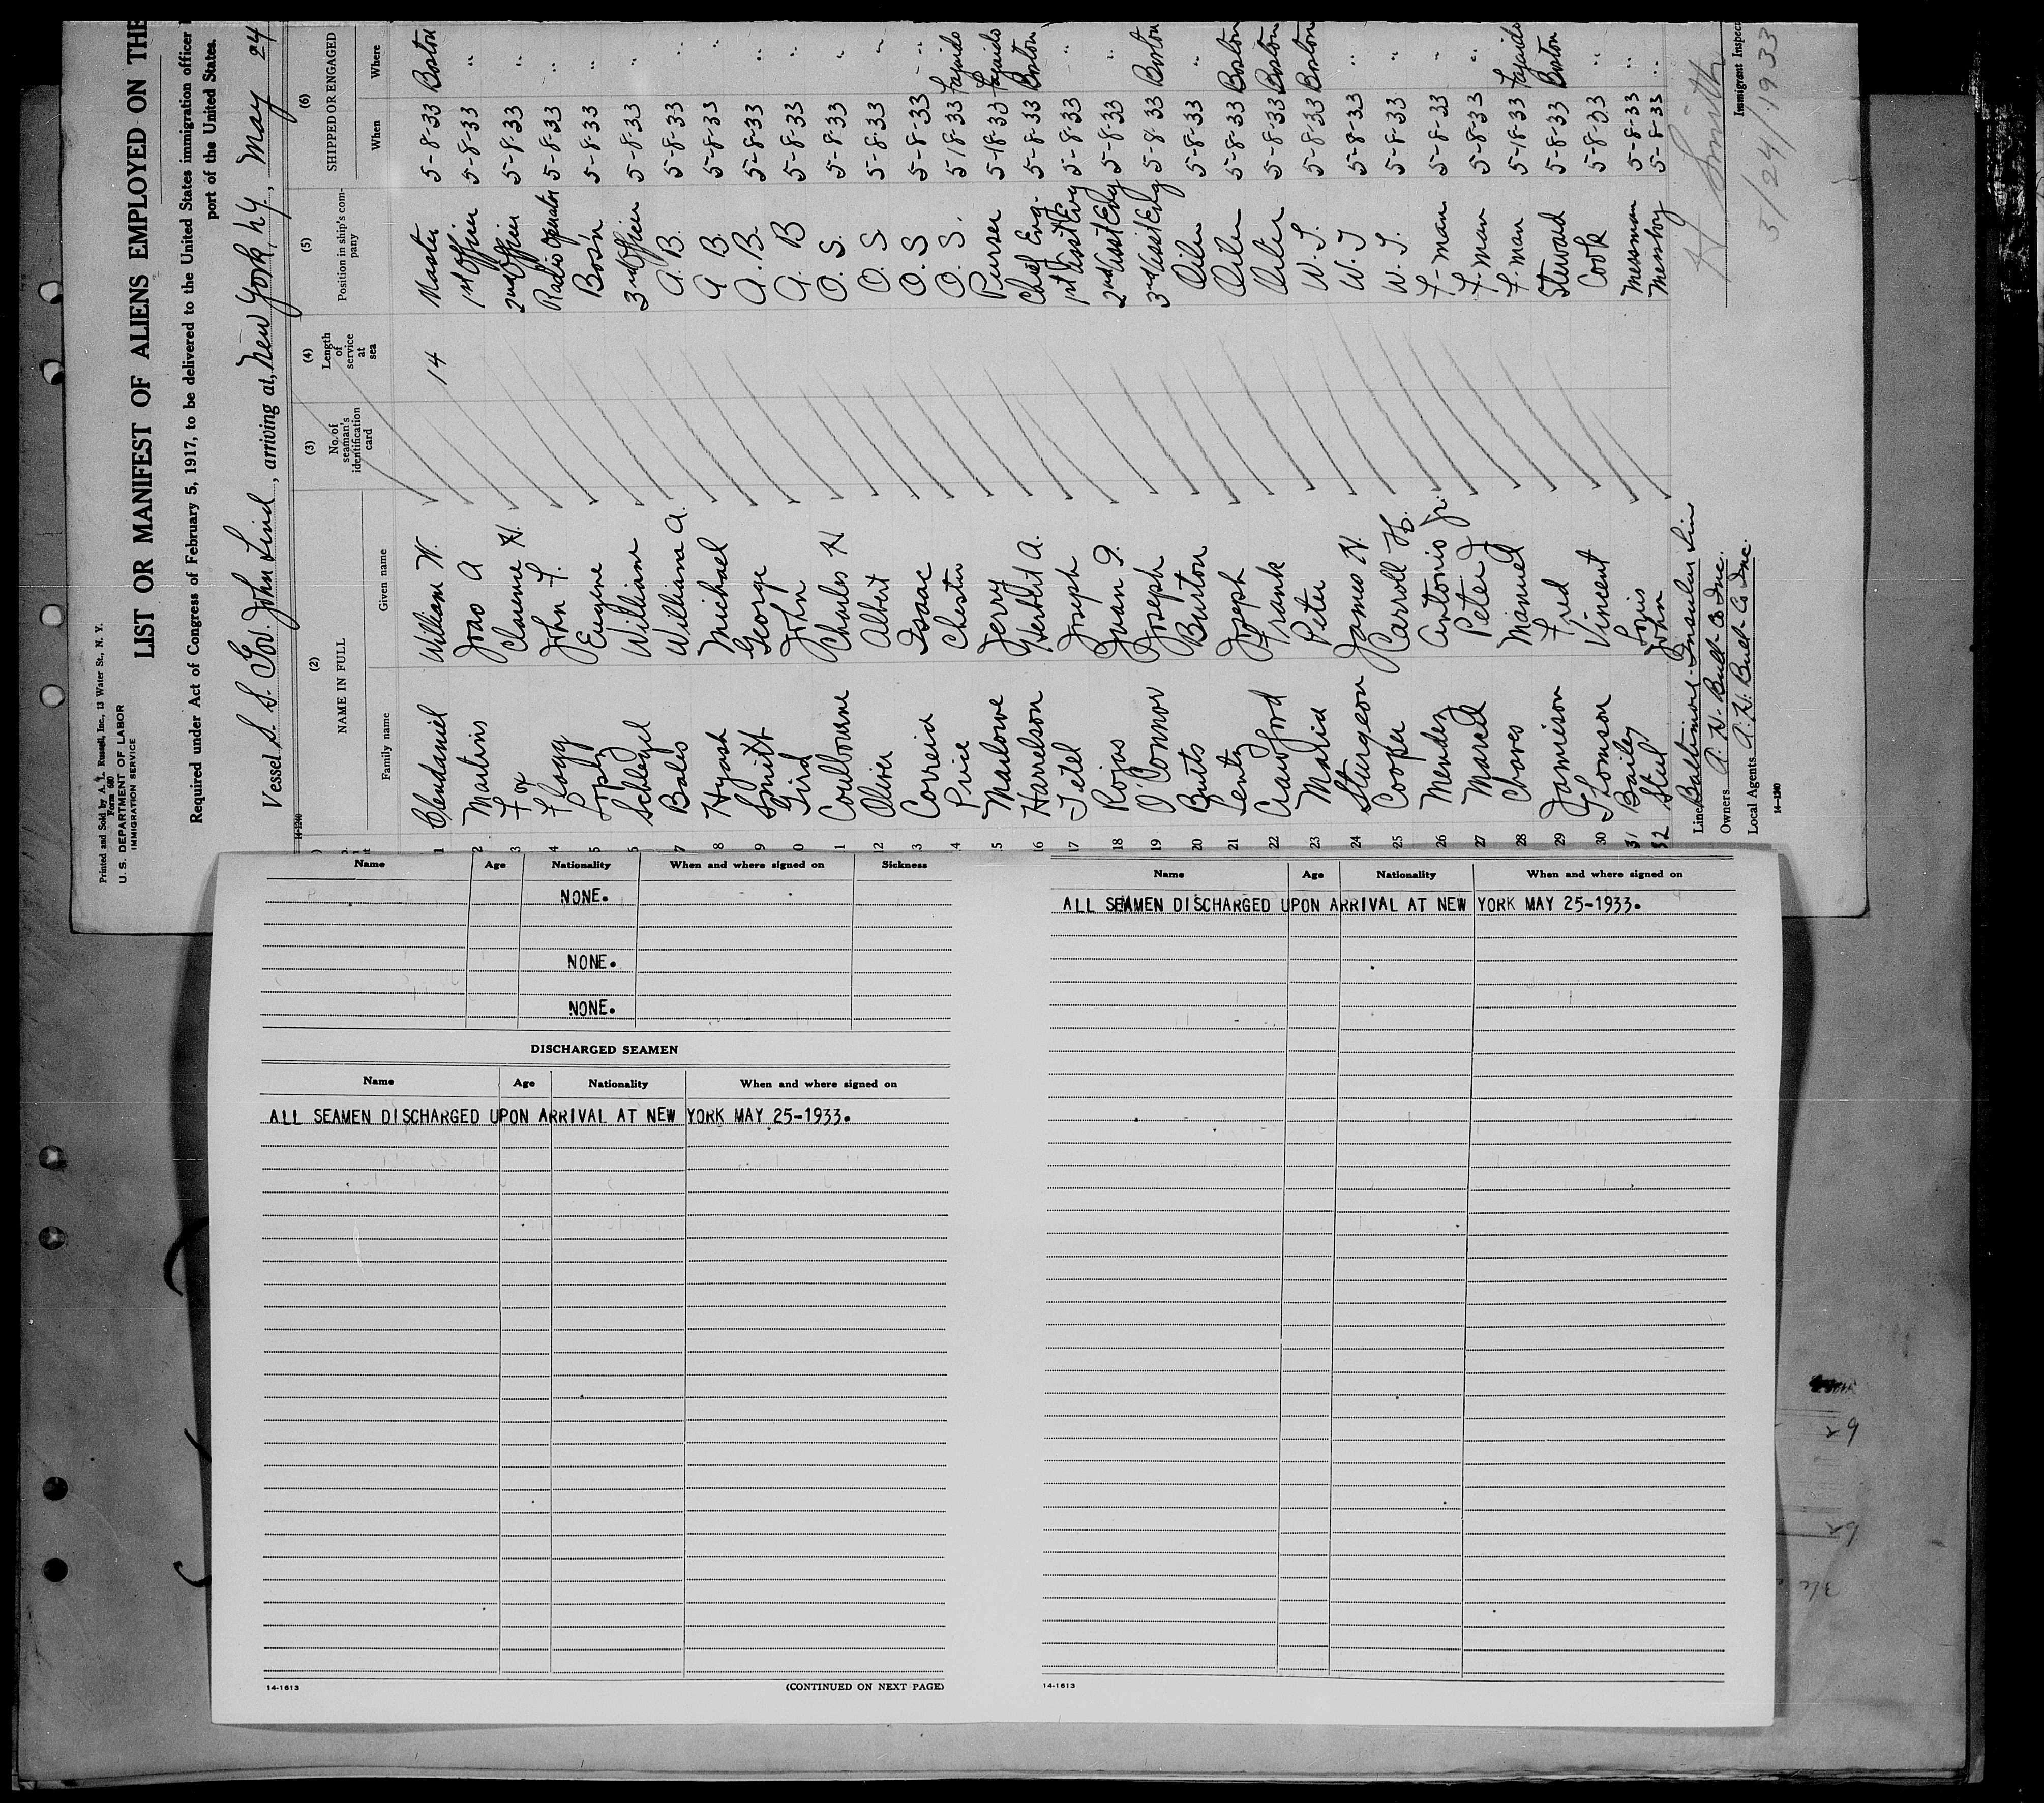 Printed and Sold by A. L. Russell, Inc., 13 Water St., N. Y.
Form 680
U. S. DEPARTMENT OF LABOR
IMMIGRATION SERVICE
LIST OR MANIFEST OF ALIENS EMPLOYED ON THE
Required under Act of Congress of February 5, 1917, to be delivered to the United States immigration officer
port of the United States.
Vessel S. S. Gov. John Lind, arriving at New York, NY, May 24
14-1240
(2) NAME IN FULL (3) No. of seaman's identification card (4) Length of service at sea (5) Position in ship's company (6) SHIPPED OR ENGAGED
Family name Given name When Where
1 Clendaniel William W. 14 Master 5-8-33 Boston
2 Martins Joao A 1st Officer 5-8-33 "
3 Fox Clarence H. 2nd Officer 5-8-33 "
4 Flogg John F. Radio Operator 5-8-33 "
5 Lopez Eugene Bos'n 5-8-33 "
6 Schlegel William 3rd Officer 5-8-33 "
7 Bales William A. A. B. 5-8-33 "
8 Hyash Michael A B. 5-8-33 "
9 Smith George A. B. 5-8-33 "
0 Gird John A. B 5-8-33 "
1 Coulbourne Charles H O. S. 5-8-33 "
12 Oliver Albert O. S. 5-8-33 "
3 Correia Isaac O. S 5-8-33 "
4 Price Chester O. S. 5-18-33 Fajardo
5 Marlowe Jerry Purser 5-18-33 Fajardo
16 Harrelson Herbert A. Chief Eng. 5-8-33 Boston
17 Tetel Joseph 1st Asst Eng 5-8-33 "
18 Rojas Juan I. 2nd Asst Eng 5-8-33 "
19 O'Connor Joseph 3rd Asst Eng 5-8-33 Boston
20 Butts Burton Oiler 5-8-33 "
21 Lentz Joseph Oiler 5-8-33 Boston
22 Crawford Frank Oiler 5-8-33 Boston
23 Maria Peter W. T. 5-8-33 Boston
24 Sturgeon James N. W. T 5-8-33 "
25 Cooper Carroll H. W. T. 5-8-33 "
26 Mendez Antonio Jr. F-man 5-8-33 "
27 Marcel Peter J F. man 5-8-33 "
28 Chaves Manuel F. man 5-18-33 Fajardo
29 Jamieson Fred Steward 5-8-33 Boston
30 Thomson Vincent Cook 5-8-33 "
31 Bailey Louis Messman 5-8-33 "
32 Stul John Messboy 5-8-33 "
Line Baltimore Insular Line
Owners A. H. Bull & Co Inc.
Local Agents A. H. Bull & Co Inc.
14-1240
Smith
Immigrant Inspec
5/24/1933
Name Age Nationality When and where signed on Sickness
NONE.
NONE.
NONE.
DISCHARGED SEAMEN
Name Age Nationality When and where signed on
ALL SEAMEN DISCHARGED UPON ARRIVAL AT NEW YORK MAY 25-1933.
14-1613 (CONTINUED ON NEXT PAGE)
Name Age Nationality When and where signed on
ALL SEAMEN DISCHARGED UPON ARRIVAL AT NEW YORK MAY 25-1933.
14-1613